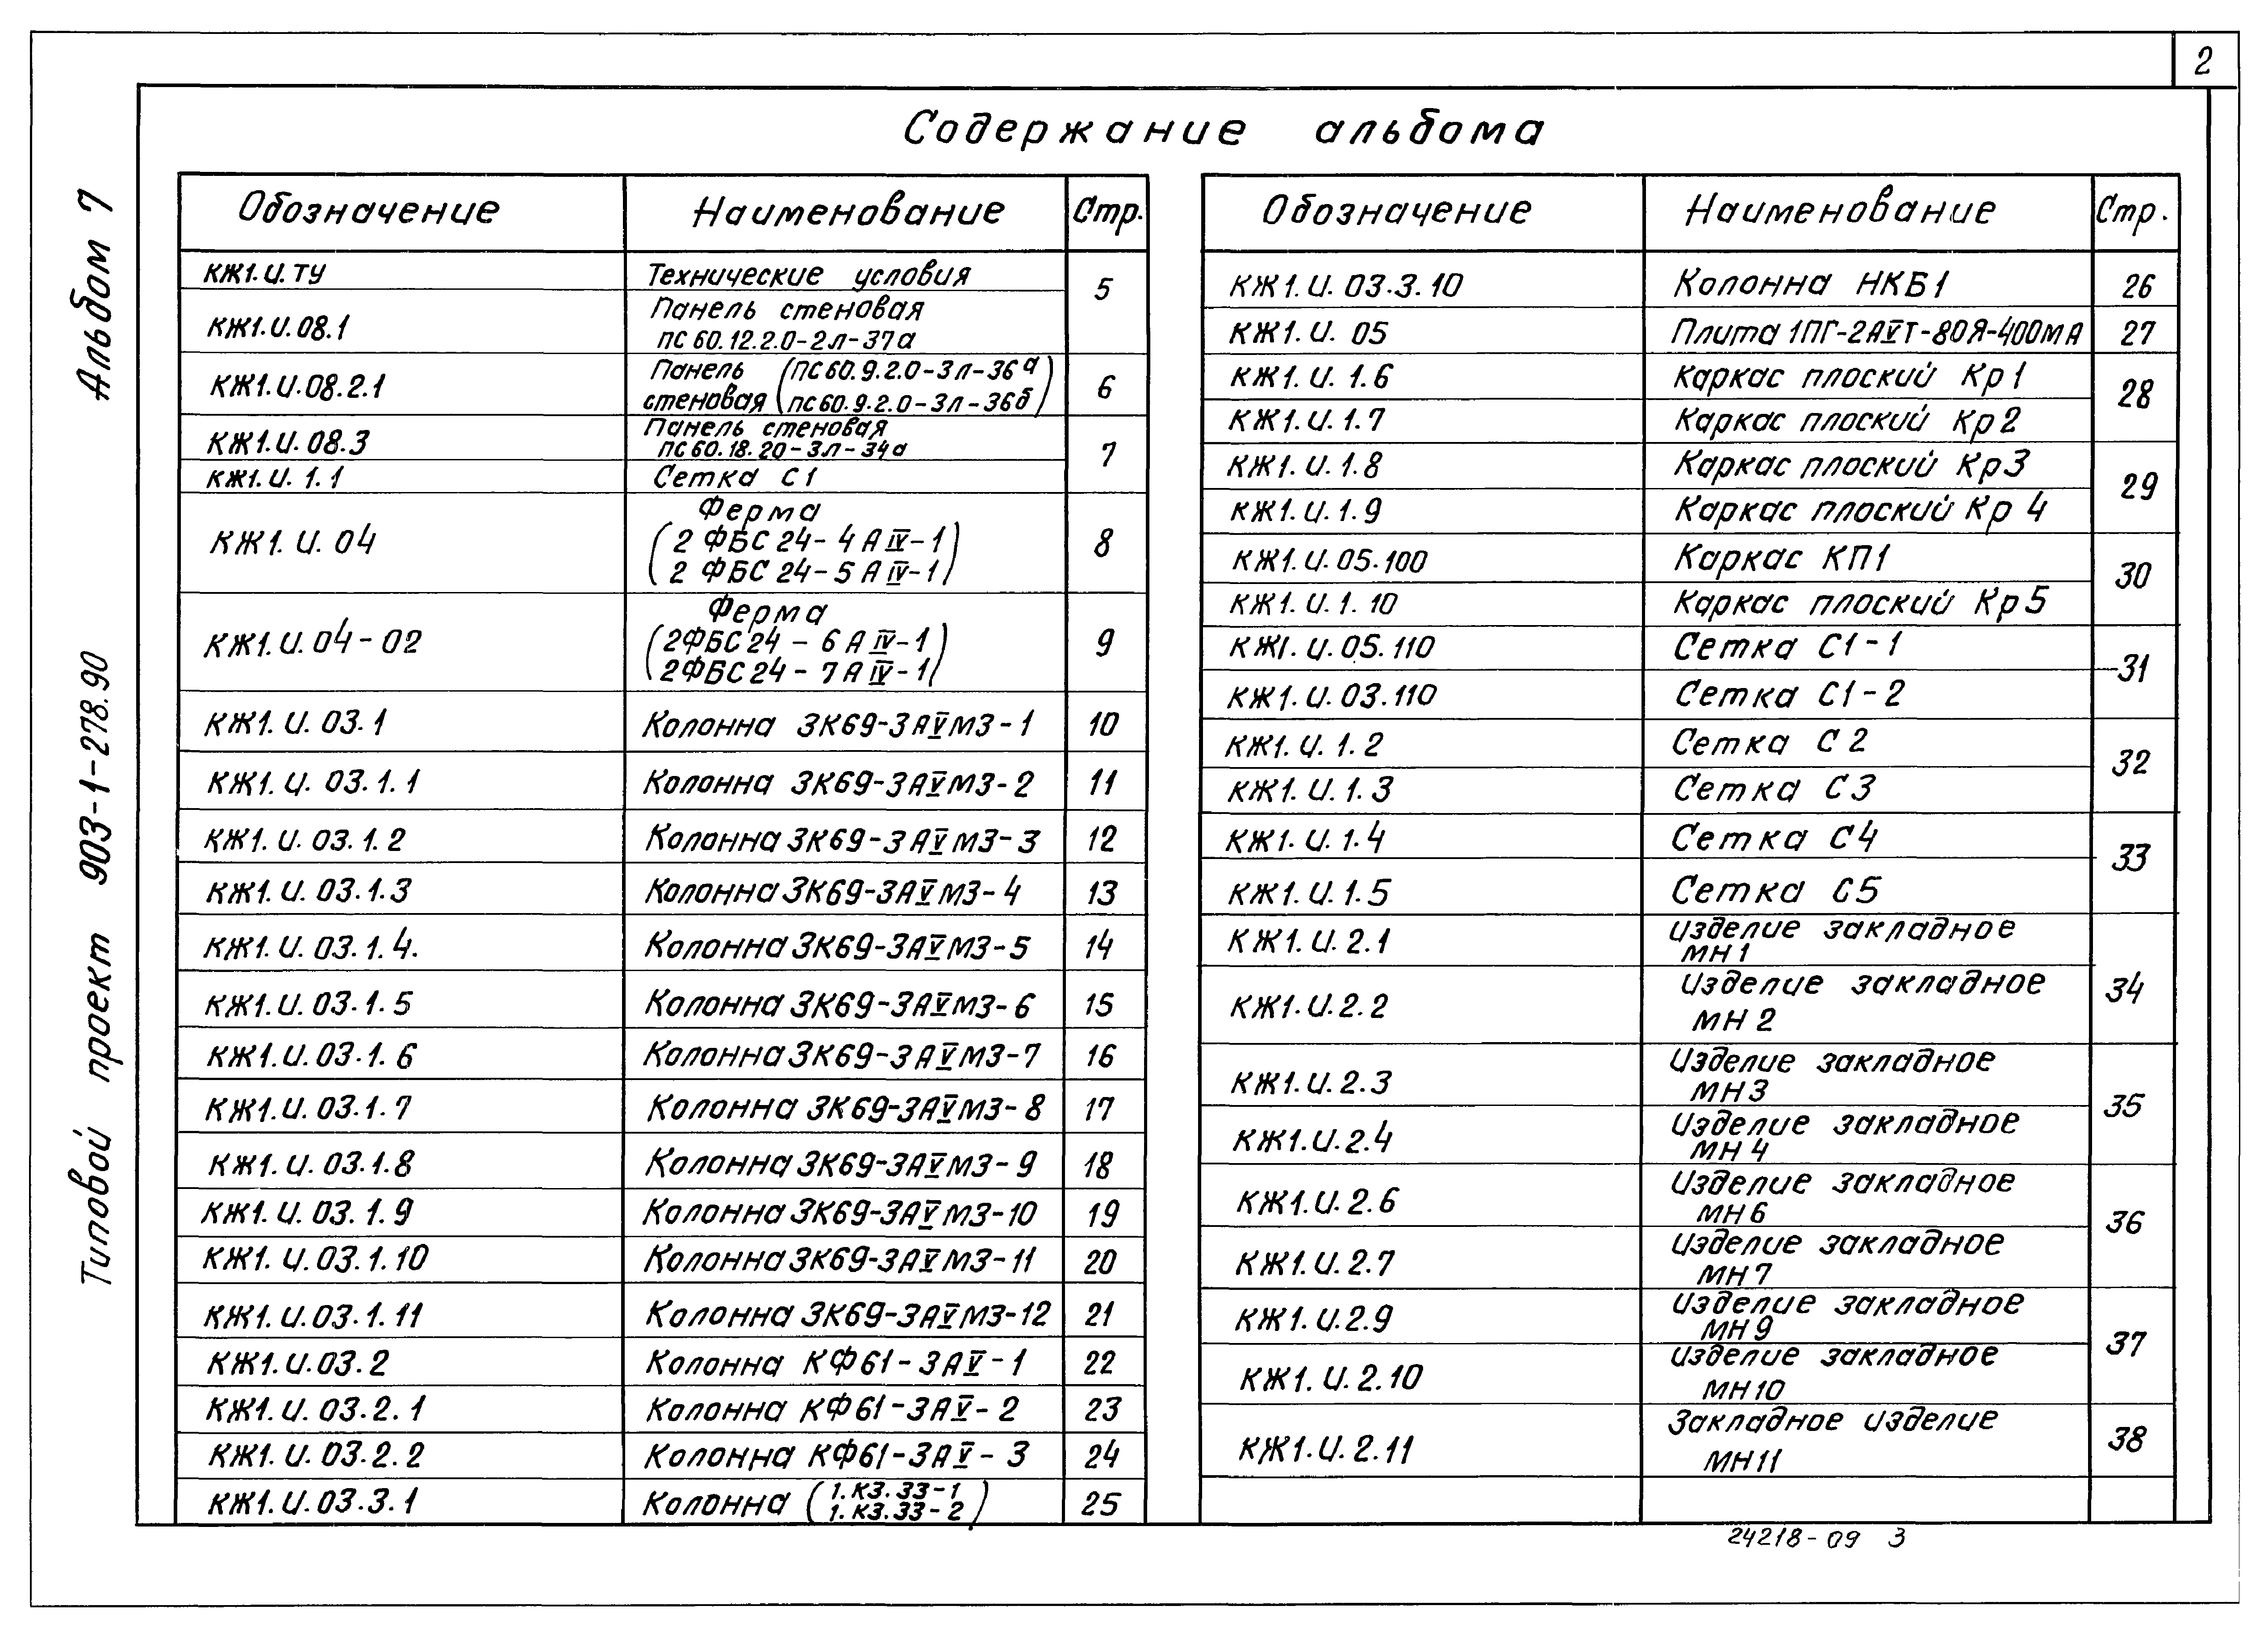 2
Содержание альбома
Альбом 7
Типовой проект 903-1-278.90
Обозначение Наименование Стр.
КЖ1.И.ТУ Технические условия 5
КЖ1.И.08.1 Панель стеновая
ПС 60.12.2.0-2Л-37а
КЖ1.И.08.2.1 Панель (ПС 60.9.2.0-3Л-36а) 6
стеновая (ПС 60.9.2.0-3Л-36б)
КЖ1.И.08.3 Панель стеновая 7
ПС 60.18.20-3Л-34а
КЖ1.И.1.1 Сетка С1
КЖ1.И.04 Ферма 8
(2 ФБС 24-4 А IV-1)
(2 ФБС 24-5 А IV-1)
КЖ1.И.04-02 Ферма 9
(2ФБС 24-6 А IV-1)
(2ФБС 24-7 А IV-1)
КЖ1.И.03.1 Колонна 3К69-3АV М3-1 10
КЖ1.И.03.1.1 Колонна 3К69-3АV М3-2 11
КЖ1.И.03.1.2 Колонна 3К69-3АV М3-3 12
КЖ1.И.03.1.3 Колонна 3К69-3АV М3-4 13
КЖ1.И.03.1.4. Колонна 3К69-3АV М3-5 14
КЖ1.И.03.1.5 Колонна 3К69-3АV М3-6 15
КЖ1.И.03.1.6 Колонна 3К69-3АV М3-7 16
КЖ1.И.03.1.7 Колонна 3К69-3АV М3-8 17
КЖ1.И.03.1.8 Колонна 3К69-3АV М3-9 18
КЖ1.И.03.1.9 Колонна 3К69-3АV М3-10 19
КЖ1.И.03.1.10 Колонна 3К69-3АV М3-11 20
КЖ1.И.03.1.11 Колонна 3К69-3АV М3-12 21
КЖ1.И.03.2 Колонна КФ61-3АV-1 22
КЖ1.И.03.2.1 Колонна КФ61-3АV-2 23
КЖ1.И.03.2.2 Колонна КФ61-3АV-3 24
КЖ1.И.03.3.1 Колонна (1.К3.33-1) 25
(1.К3.33-2)
Обозначение Наименование Стр.
КЖ1.И.03.3.10 Колонна НКБ1 26
КЖ1.И.05 Плита 1ПГ-2АVТ-80Я-400МА 27
КЖ1.И.1.6 Каркас плоский Кр1 28
КЖ1.И.1.7 Каркас плоский Кр2
КЖ1.И.1.8 Каркас плоский Кр3 29
КЖ1.И.1.9 Каркас плоский Кр4
КЖ1.И.05.100 Каркас КП1 30
КЖ1.И.1.10 Каркас плоский Кр5
КЖ1.И.05.110 Сетка С1-1 31
КЖ1.И.03.110 Сетка С1-2
КЖ1.И.1.2 Сетка С2 32
КЖ1.И.1.3 Сетка С3
КЖ1.И.1.4 Сетка С4 33
КЖ1.И.1.5 Сетка С5
КЖ1.И.2.1 Изделие закладное 34
МН1
КЖ1.И.2.2 Изделие закладное
МН2
КЖ1.И.2.3 Изделие закладное 35
МН3
КЖ1.И.2.4 Изделие закладное
МН4
КЖ1.И.2.6 Изделие закладное 36
МН6
КЖ1.И.2.7 Изделие закладное
МН7
КЖ1.И.2.9 Изделие закладное 37
МН9
КЖ1.И.2.10 Изделие закладное
МН10
КЖ1.И.2.11 Закладное изделие 38
МН11
24218-09 3